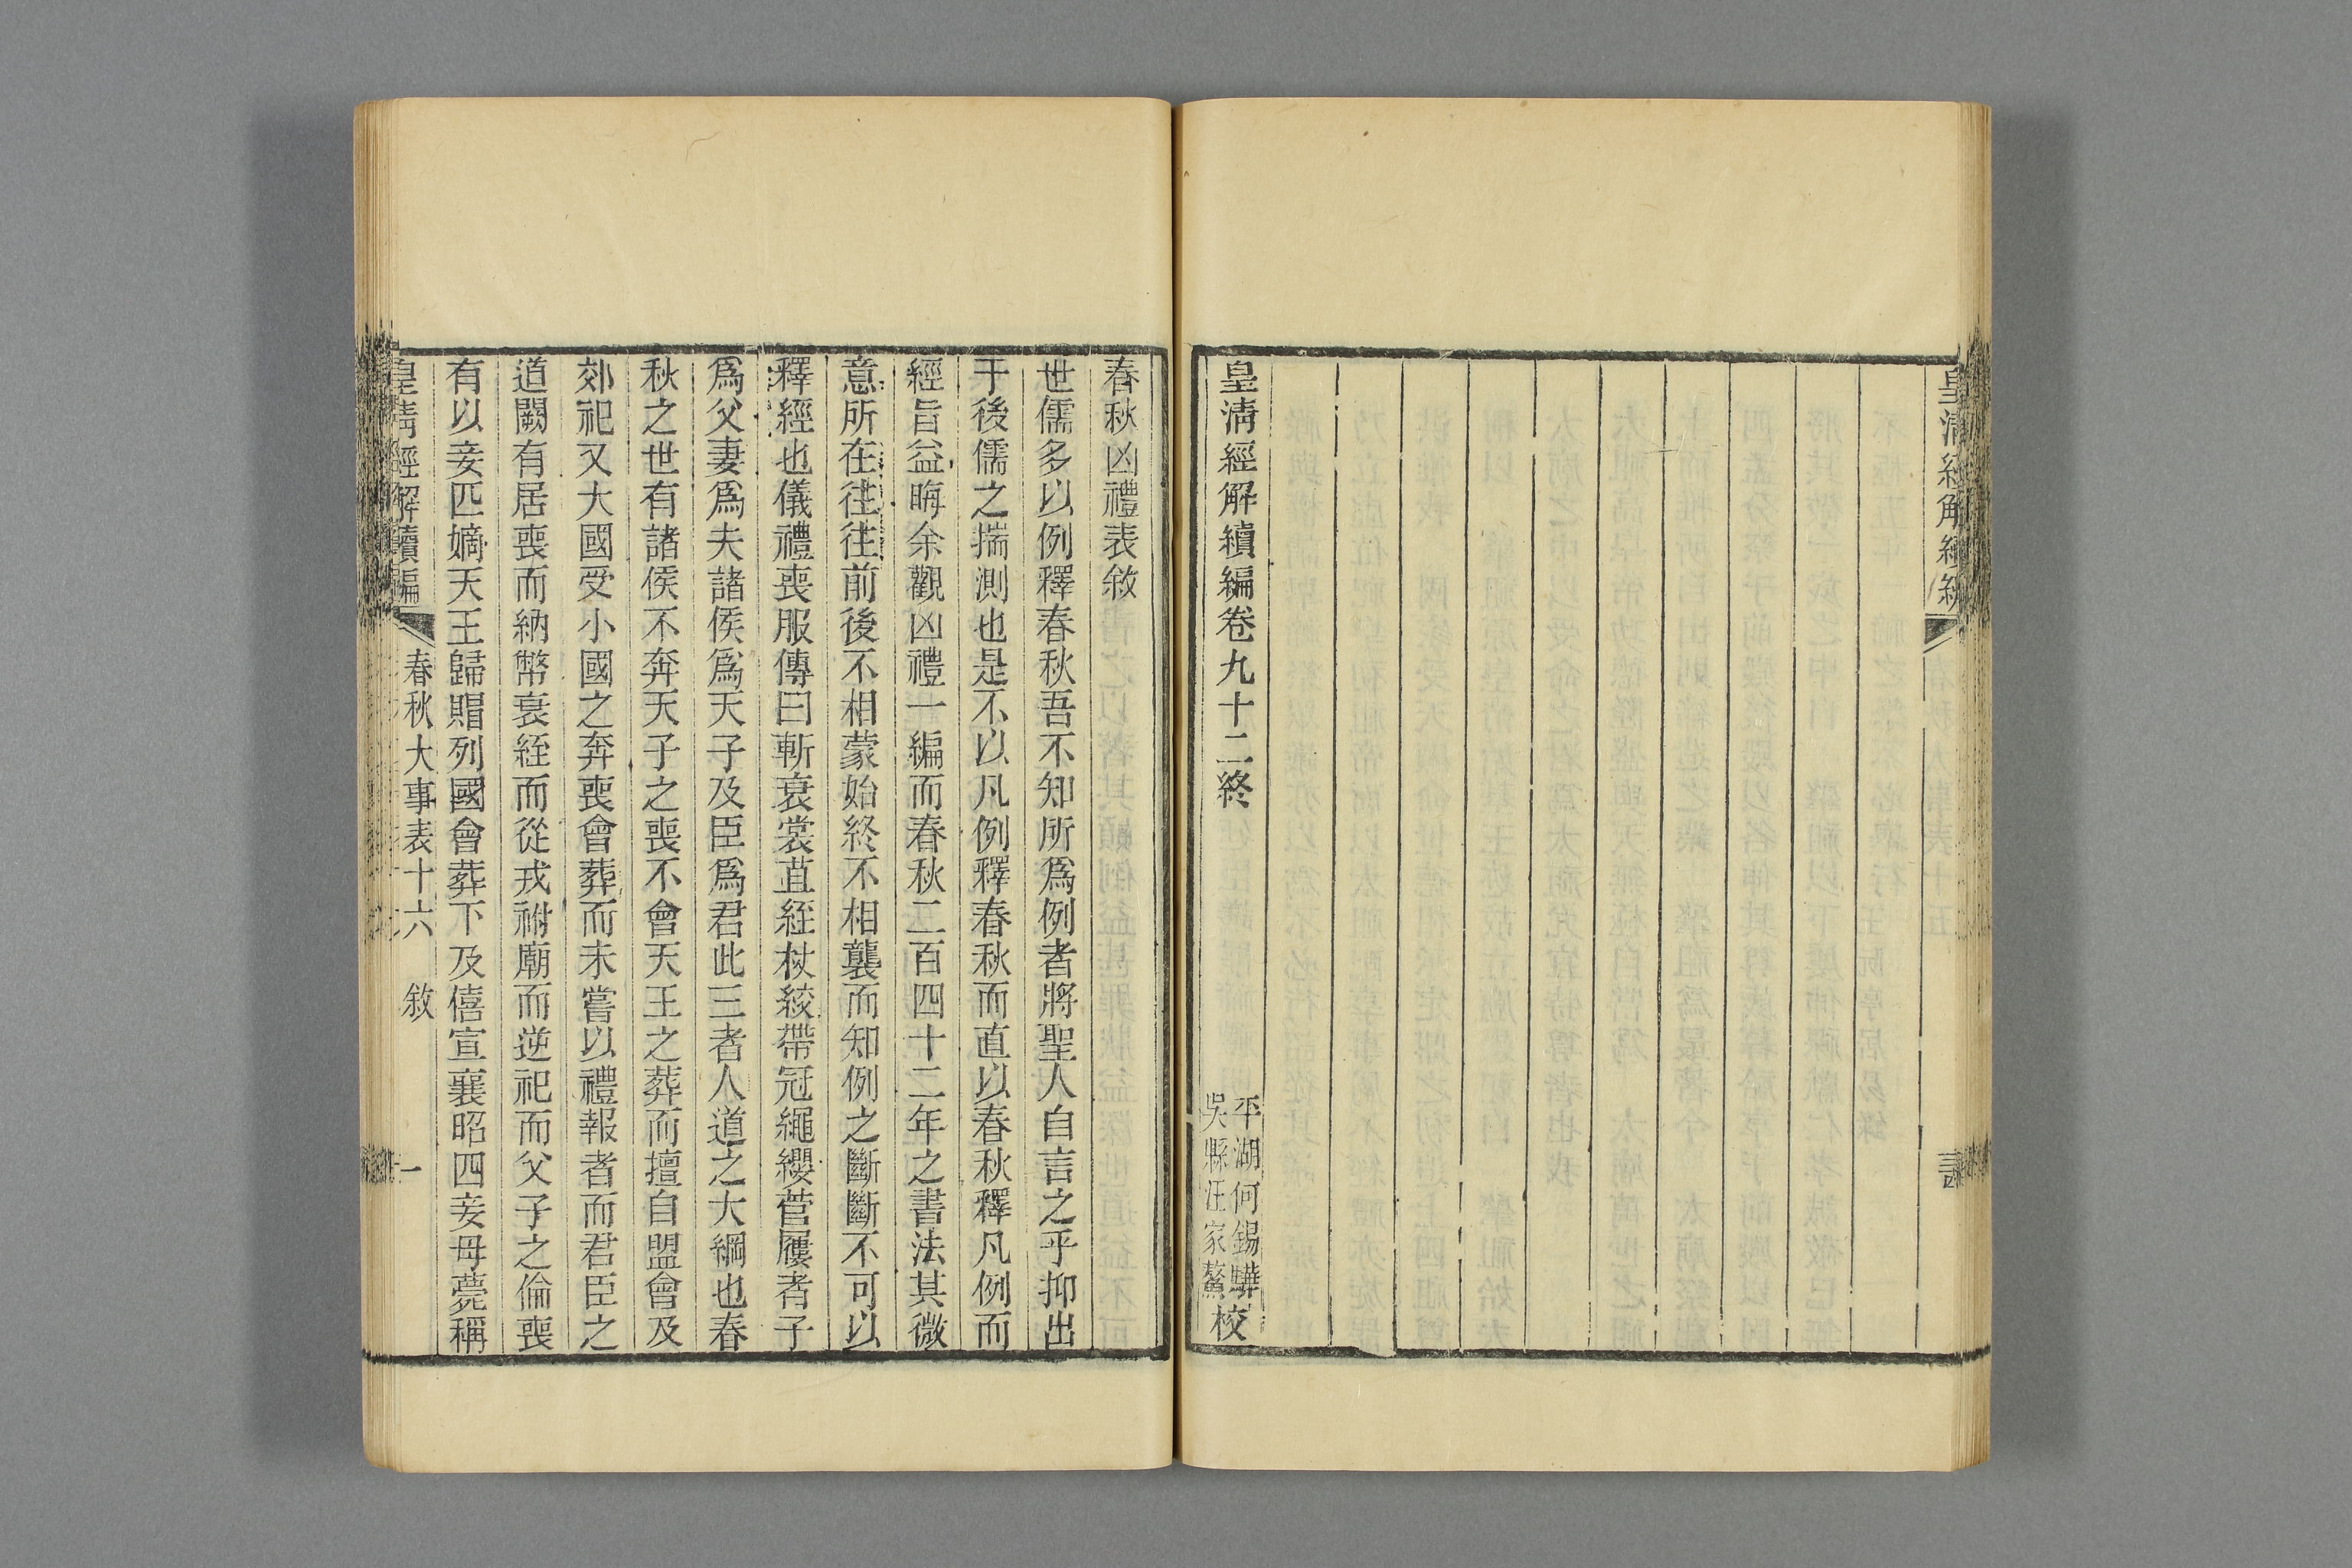 皇清經解續編卷九十二終
平湖何錫驊
吳縣汪家鰲校
春秋凶禮表敘
世儒多以例釋春秋吾不知所爲例者將聖人自言之乎抑出
于後儒之揣測也是不以凡例釋春秋而直以春秋釋凡例而
經旨益晦余觀凶禮一編而春秋二百四十二年之書法其微
意所在往往前後不相蒙始終不相襲而知例之斷斷不可以
釋經也儀禮喪服傳曰斬衰裳苴絰杖絞帶冠繩纓菅屨者子
爲父妻爲夫諸侯爲天子及臣爲君此三者人道之大綱也春
秋之世有諸侯不奔天子之喪不會天王之葬而擅自盟會及
郊祀又大國受小國之奔喪會葬而未嘗以禮報者而君臣之
道闕有居喪而納幣衰絰而從戎祔廟而逆祀而父子之倫喪
有以妾匹嫡天王歸賵列國會葬下及僖宣襄昭四妾母薨稱
皇清經解續編
春秋大事表十六 敘
一